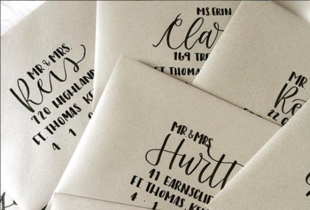 MR & MRS
Reis
720 HIGHLAND
FT THOMAS KE
4 1
MS ERIN
Cla
169 TR
FT THOMAS
MR
R
22
MR & MRS
Hurtt
41 EARNSCLIF
FT THOMAS, KE
4